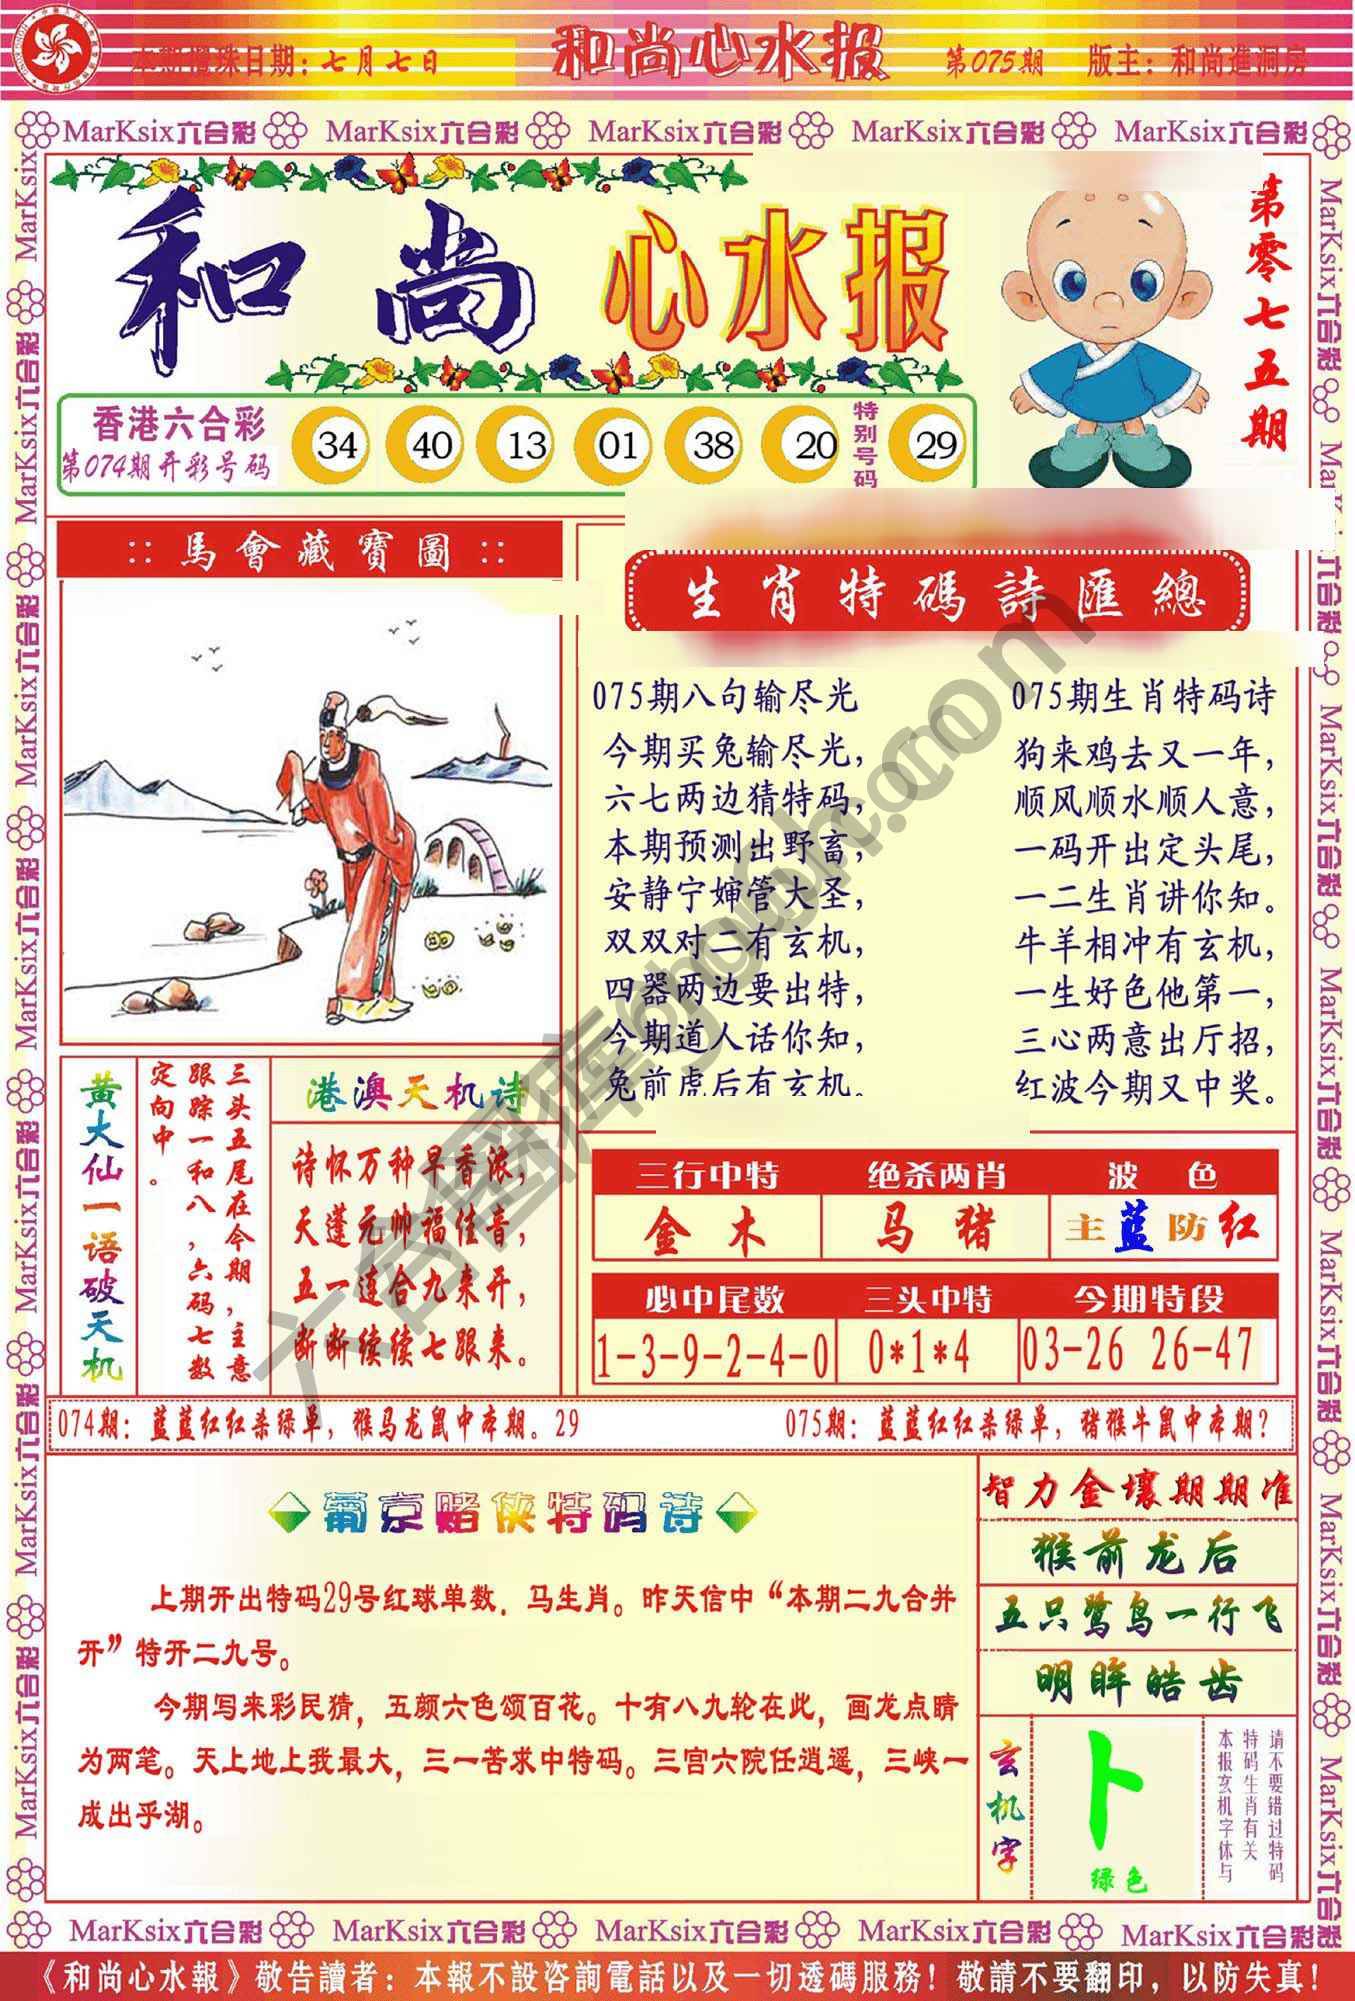 本期攪珠日期：七月七日
和尚心水报
第075期
版主：和尚進洞房
MarKsix六合彩 MarKsix六合彩 MarKsix六合彩 MarKsix六合彩 MarKsix六合彩
和尚 心水报
第零七五期
香港六合彩
第074期开彩号码
34 40 13 01 38 20 特别号码 29
::馬會藏寶圖::
生肖特碼詩匯總
075期八句输尽光
今期买兔输尽光，
六七两边猜特码，
本期预测出野畜，
安静宁婶管大圣，
双双对二有玄机，
四器两边要出特，
今期道人话你知，
兔前虎后有玄机。
075期生肖特码诗
狗来鸡去又一年，
顺风顺水顺人意，
一码开出定头尾，
一二生肖讲你知。
牛羊相冲有玄机，
一生好色他第一，
三心两意出厅招，
红波今期又中奖。
黄大仙一语破天机
三头五尾在今期，主意
跟踪一和八，六码七数
定向中。
港澳天机诗
诗怀万种早香浓，
天蓬元帅福佳音，
五一连合九来开，
断断续续七跟来。
三行中特 绝杀两肖 波 色
金 木 马 猪 主蓝防红
必中尾数 三头中特 今期特段
1-3-9-2-4-0 0*1*4 03-26 26-47
074期：蓝蓝红红杀绿单，猴马龙鼠中本期。29
075期：蓝蓝红红杀绿单，猪猴牛鼠中本期？
葡京赌侠特码诗
上期开出特码29号红球单数，马生肖。昨天信中“本期二九合并
开”特开二九号。
今期写来彩民猜，五颜六色颂百花。十有八九轮在此，画龙点睛
为两笔。天上地上我最大，三一苦求中特码。三宫六院任逍遥，三峡一
成出乎湖。
智力金壤期期准
猴前龙后
五只鹭鸟一行飞
明眸皓齿
玄机字
卜
绿色
请不要错过特码
特码生肖有关
本报玄机字体与
MarKsix六合彩 MarKsix六合彩 MarKsix六合彩 MarKsix六合彩 MarKsix六合彩
《和尚心水報》敬告讀者：本報不設咨詢電話以及一切透碼服務！敬請不要翻印，以防失真！